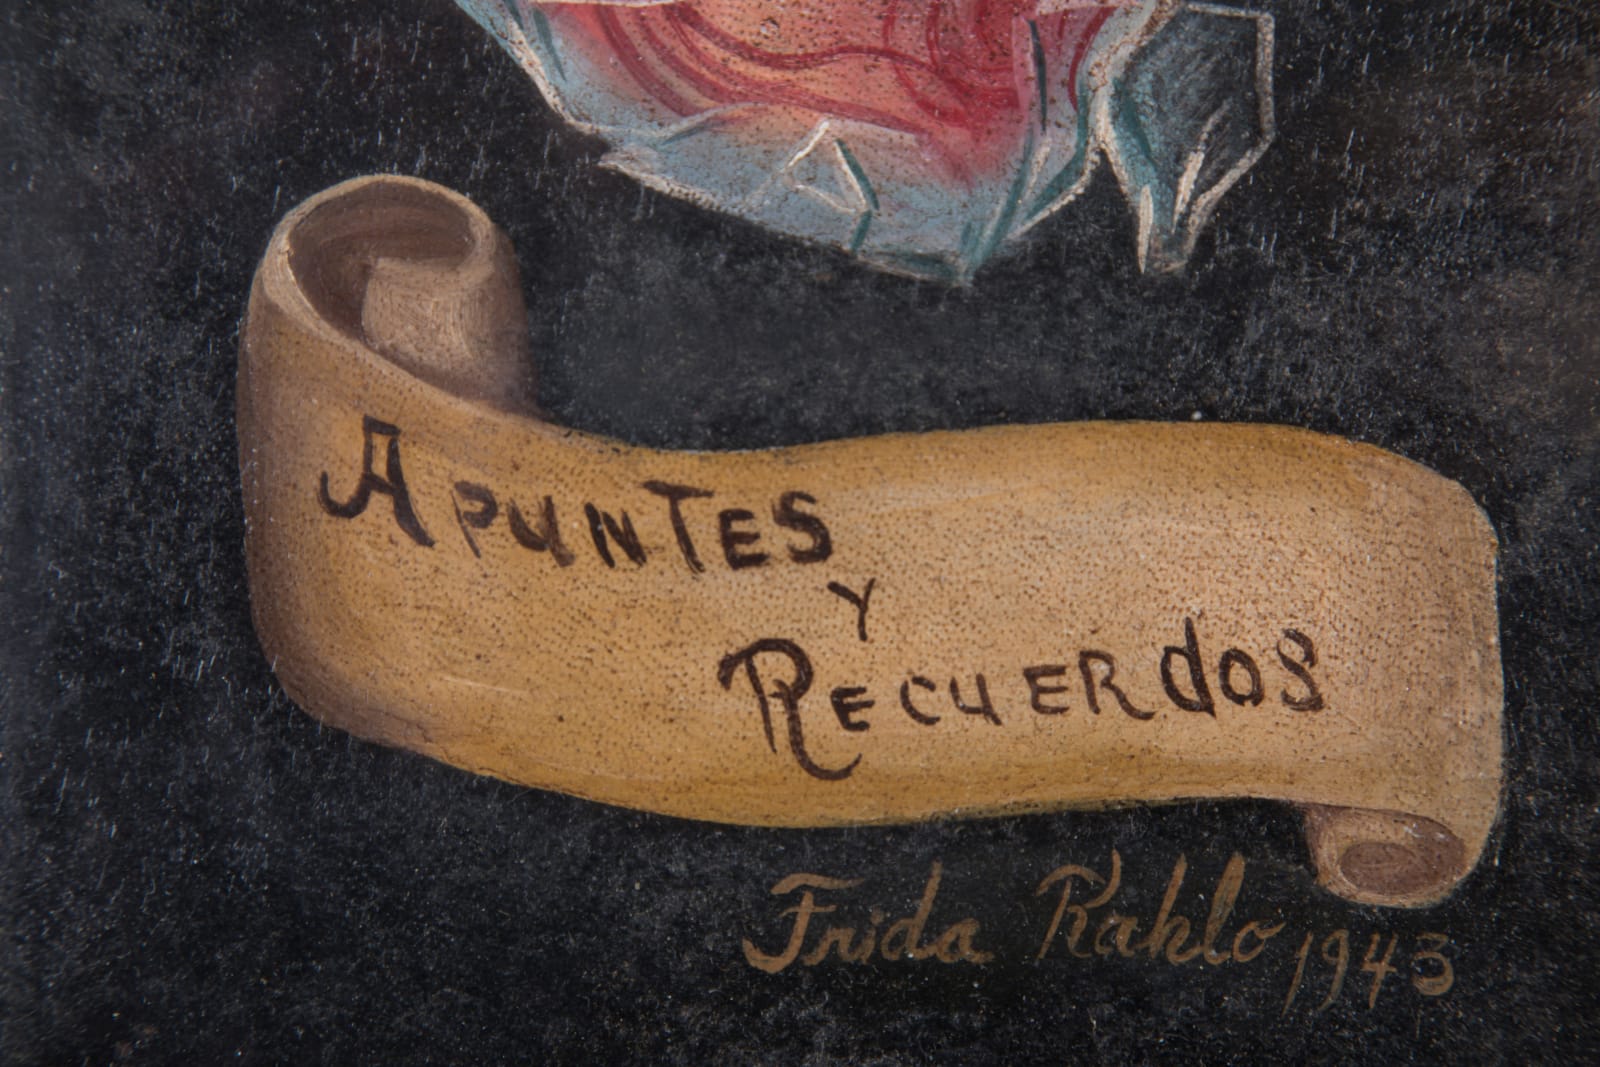 APUNTES
Y
RECUERdOS
Frida Kahlo 1943